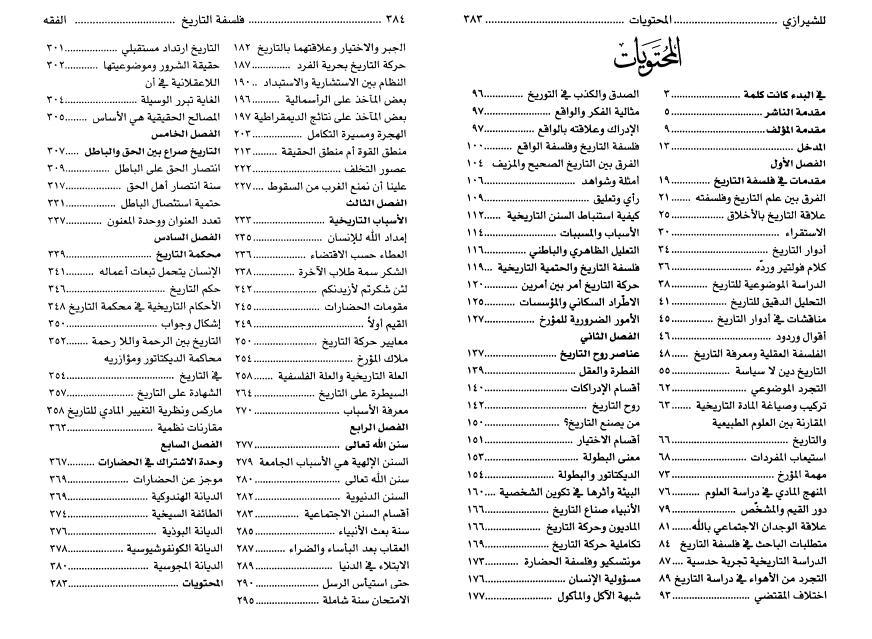 للشيرازي ........ المحتويات ........ ٣٨٣
المحتويات
في البدء كانت كلمة ........ ٣
مقدمة الناشر ........ ٥
مقدمة المؤلف ........ ٩
المدخل ........ ١٣
الفصل الأول
مقدمات في فلسفة التاريخ ........ ١٩
الفرق بين علم التاريخ وفلسفته ........ ٢١
علاقة التاريخ بالأخلاق ........ ٢٥
الاستقراء ........ ٣٠
أدوار التاريخ ........ ٣٤
كلام فولتير وردّه ........ ٣٦
الدراسة الموضوعية للتاريخ ........ ٣٨
التحليل الدقيق للتاريخ ........ ٤١
مناقشات في أدوار التاريخ ........ ٤٥
أقوال وردود ........ ٤٦
الفلسفة العقلية ومعرفة التاريخ ........ ٤٨
التاريخ دين لا سياسة ........ ٥٥
التجرد الموضوعي ........ ٦٢
تركيب وصياغة المادة التاريخية ........ ٦٣
المقارنة بين العلوم الطبيعية
والتاريخ ........ ٦٦
استيعاب المفردات ........ ٦٨
مهمة المؤرخ ........ ٧٣
المنهج المادي في دراسة العلوم ........ ٧٦
دور القيم والمشخّص ........ ٧٩
علاقة الوجدان الاجتماعي بالله ........ ٨١
متطلبات الباحث في فلسفة التاريخ ٨٤
الدراسة التاريخية تجربة حدسية ........ ٨٧
التجرد من الأهواء في دراسة التاريخ ٨٩
اختلاف المقتضي ........ ٩٣
الصدق والكذب في التوريخ ........ ٩٦
مثالية الفكر والواقع ........ ٩٧
الإدراك وعلاقته بالواقع ........ ٩٧
فلسفة التاريخ وفلسفة الواقع ........ ١٠٠
الفرق بين التاريخ الصحيح والمزيف ١٠٤
أمثلة وشواهد ........ ١٠٦
رأي وتعليق ........ ١٠٩
كيفية استنباط السنن التاريخية ........ ١١٢
الأسباب والمسببات ........ ١١٤
التعليل الظاهري والباطني ........ ١١٦
فلسفة التاريخ والحتمية التاريخية ........ ١١٩
حركة التاريخ أمر بين أمرين ........ ١٢٠
الاطّراد السكاني والمؤسسات ........ ١٢٥
الأمور الضرورية للمؤرخ ........ ١٢٧
الفصل الثاني
عناصر روح التاريخ ........ ١٣٧
الفطرة والعقل ........ ١٣٩
أقسام الإدراكات ........ ١٤٠
روح التاريخ ........ ١٤٢
من يصنع التاريخ؟ ........ ١٥٠
أقسام الاختيار ........ ١٥١
معنى البطولة ........ ١٥٣
الديكتاتور والبطولة ........ ١٥٤
البيئة وأثرها في تكوين الشخصية ........ ١٦٠
الأنبياء صناع التاريخ ........ ١٦٦
الماديون وحركة التاريخ ........ ١٦٦
تكاملية حركة التاريخ ........ ١٦٩
مونتسكيو وفلسفة الحضارة ........ ١٧٣
مسؤولية الإنسان ........ ١٧٦
شبهة الآكل والمأكول ........ ١٧٧
٣٨٤ ........ فلسفة التاريخ ........ الفقه
الجبر والاختيار وعلاقتهما بالتاريخ ١٨٢
حركة التاريخ بحرية الفرد ........ ١٨٧
النظام بين الاستشارية والاستبداد ........ ١٩٠
بعض المآخذ على الرأسمالية ........ ١٩٦
بعض المآخذ على نتائج الديمقراطية ١٩٧
الهجرة ومسيرة التكامل ........ ٢٠٣
منطق القوة أم منطق الحقيقة ........ ٢١٣
عصور التخلف ........ ٢٢٢
علينا أن نمنع الغرب من السقوط ........ ٢٢٧
الفصل الثالث
الأسباب التاريخية ........ ٢٣٣
إمداد الله للإنسان ........ ٢٣٥
العطاء حسب الاقتضاء ........ ٢٣٦
الشكر سمة طلاب الآخرة ........ ٢٣٨
لئن شكرتم لأزيدنكم ........ ٢٤٢
مقومات الحضارات ........ ٢٤٥
القيم أولاً ........ ٢٤٩
معايير حركة التاريخ ........ ٢٥٠
ملاك المؤرخ ........ ٢٥٤
العلة التاريخية والعلة الفلسفية ........ ٢٥٨
السيطرة على التاريخ ........ ٢٦٤
معرفة الأسباب ........ ٢٧٠
الفصل الرابع
سنن الله تعالى ........ ٢٧٧
السنن الإلهية هي الأسباب الجامعة ٢٧٩
سنن الله تعالى ........ ٢٨٠
السنن الدنيوية ........ ٢٨٢
أقسام السنن الاجتماعية ........ ٢٨٣
سنة بعث الأنبياء ........ ٢٨٥
العقاب بعد البأساء والضراء ........ ٢٨٧
الابتلاء في الدنيا ........ ٢٨٩
حتى استيأس الرسل ........ ٢٩٠
الامتحان سنة شاملة ........ ٢٩٥
التاريخ ارتداد مستقبلي ........ ٣٠١
حقيقة الشرور وموضوعيتها ........ ٣٠٢
اللاعقلانية في أن
الغاية تبرر الوسيلة ........ ٣٠٤
المصالح الحقيقية هي الأساس ........ ٣٠٥
الفصل الخامس
التاريخ صراع بين الحق والباطل ........ ٣٠٧
انتصار الحق على الباطل ........ ٣٠٩
سنة انتصار أهل الحق ........ ٣١٧
حتمية استئصال الباطل ........ ٣٣١
تعدد العنوان ووحدة المعنون ........ ٣٣٧
الفصل السادس
محكمة التاريخ ........ ٣٣٩
الإنسان يتحمل تبعات أعماله ........ ٣٤١
حكم التاريخ ........ ٣٤٦
الأحكام التاريخية في محكمة التاريخ ٣٤٨
إشكال وجواب ........ ٣٥٠
التاريخ بين الرحمة واللا رحمة ........ ٣٥٢
محاكمة الديكتاتور ومؤازريه
في التاريخ ........ ٣٥٤
الشهادة على التاريخ ........ ٣٥٧
ماركس ونظرية التغيير المادي للتاريخ ٣٥٨
مقارنات نظمية ........ ٣٦٣
الفصل السابع
وحدة الاشتراك في الحضارات ........ ٣٦٧
موجز عن الحضارات ........ ٣٦٩
الديانة الهندوكية ........ ٣٦٩
الطائفة السيخية ........ ٣٧٤
الديانة البوذية ........ ٣٧٦
الديانة الكونفوشيوسية ........ ٣٧٨
الديانة المجوسية ........ ٣٨٠
المحتويات ........ ٣٨٣